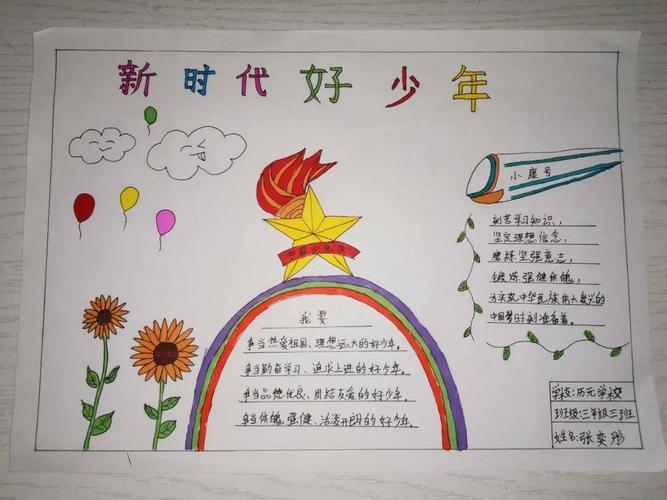 新时代好少年
小康号
中国少先队
我要
争当热爱祖国、理想远大的好少年。
争当勤奋学习、追求上进的好少年。
争当品德优良、团结友爱的好少年。
争当体魄强健、活泼开朗的好少年。
刻苦学习知识，
坚定理想信念，
磨练坚强意志，
锻炼强健体魄，
为实现中华民族伟大复兴的
中国梦时刻准备着。
学校：历元学校
班级：三年级三班
姓名：张奕彤